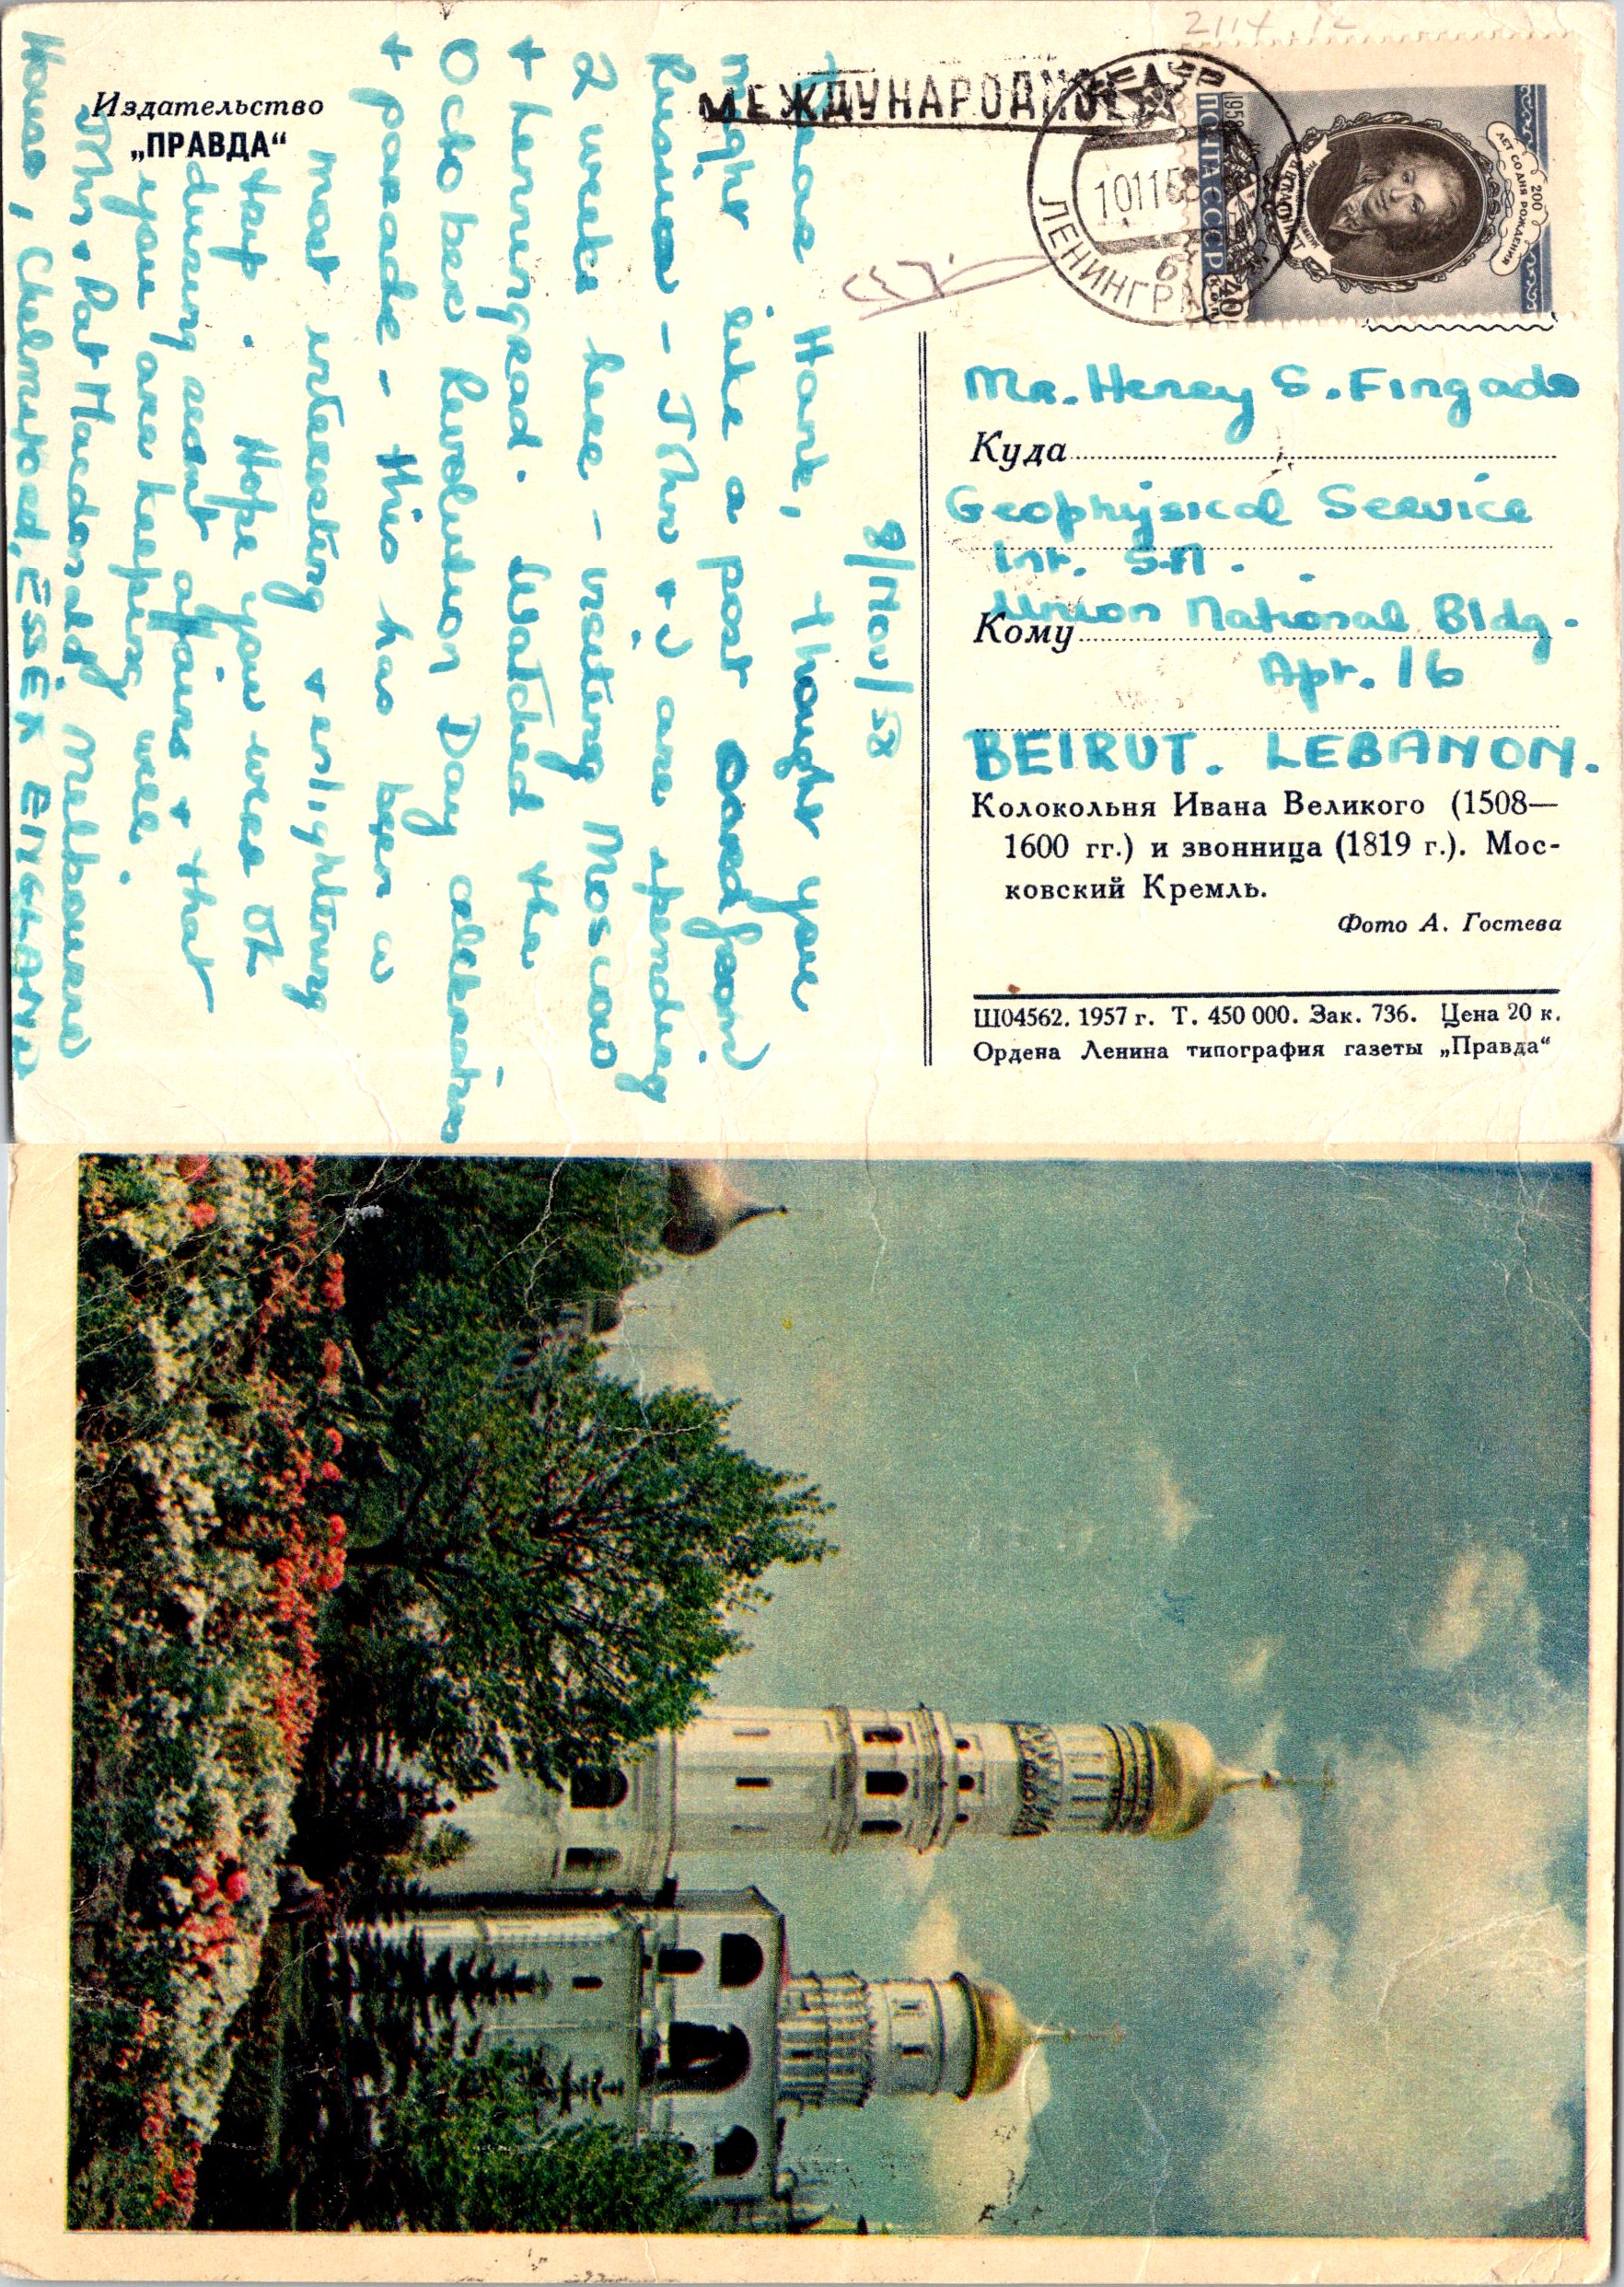 Издательство
„ПРАВДА“
МЕЖДУНАРОДНОЕ
2114
ЛЕНИНГРА
101158
6
ПОЧТА СССР
1958
40
КОП
200
ЛЕТ СО ДНЯ РОЖДЕНИЯ
8/Nov/58
Dear Hank, thought you
might like a post card from
Russia - John & I are spending
2 weeks here - visiting Moscow
& Leningrad. Watched the
October Revolution Day celebration
& parade - this has been a
most interesting & enlightening
trip. Hope you were OK
during recent affairs & that
you are keeping well.
John & Pat Macdonald Melbourne
House, Chelmsford, ESSEX ENGLAND
Mr. Henry S. Fingado
Куда
Geophysical Service
Int. S.A.
Union National Bldg.
Кому
Apt. 16
BEIRUT. LEBANON.
Колокольня Ивана Великого (1508—
1600 гг.) и звонница (1819 г.). Мос-
ковский Кремль.
Фото А. Гостева
Ш04562. 1957 г. Т. 450 000. Зак. 736. Цена 20 к.
Ордена Ленина типография газеты „Правда“